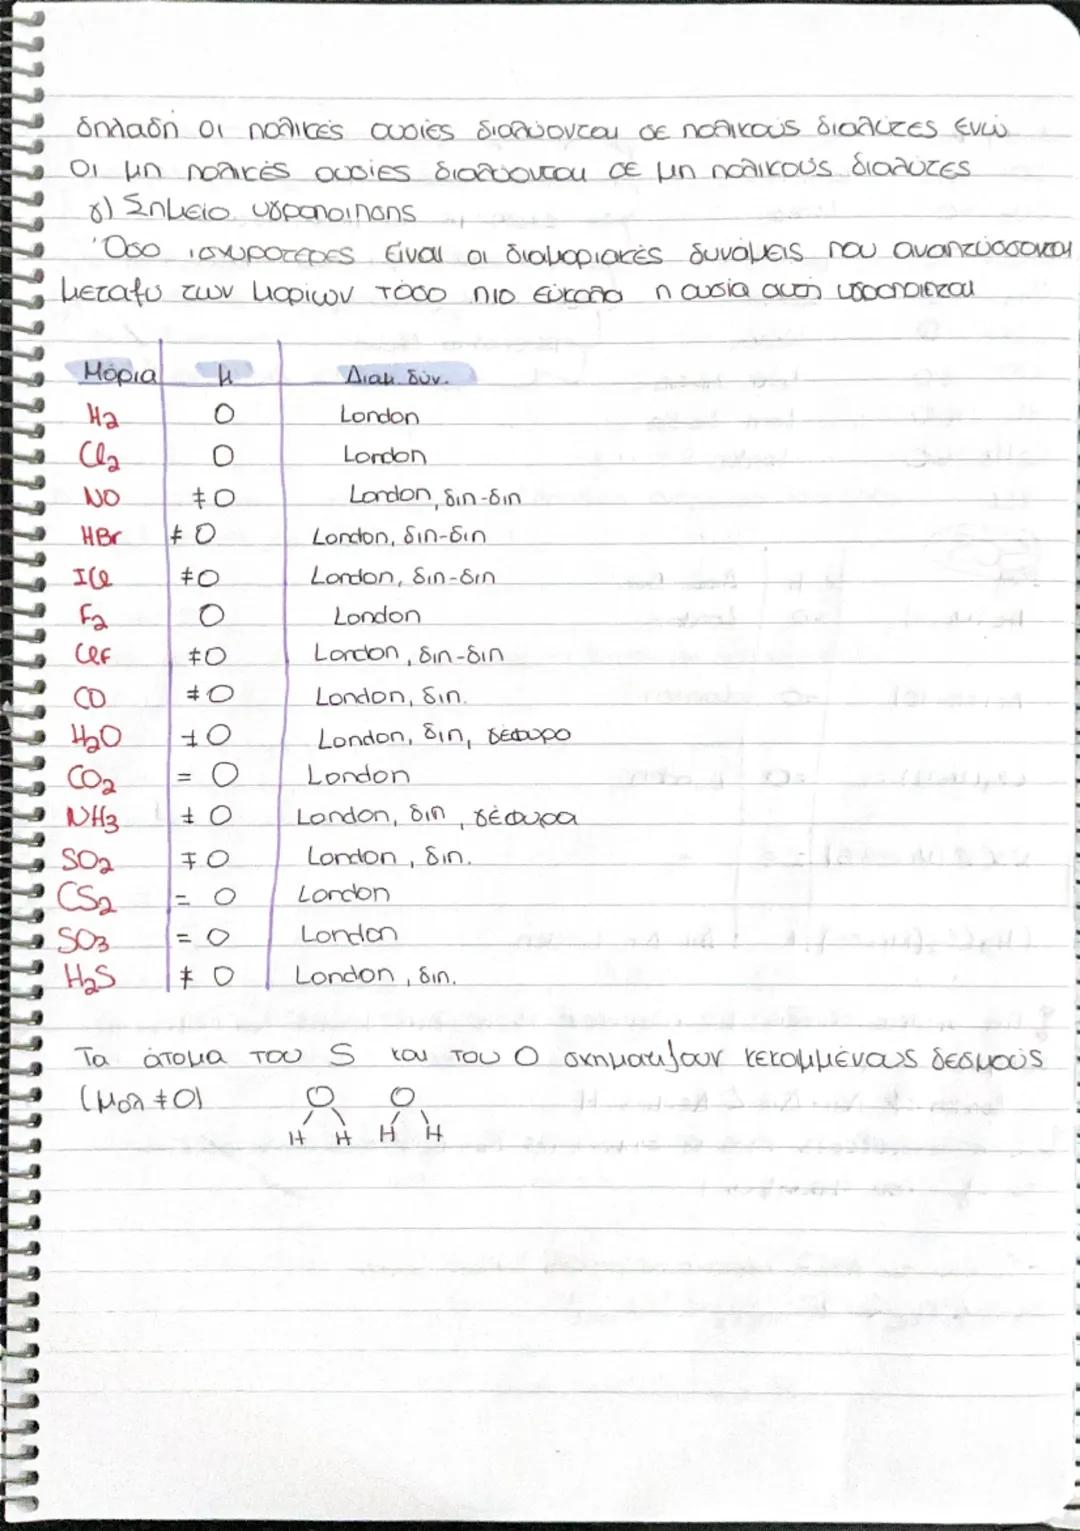 δηλαδή οι πολικές ουσίες διαλύονται σε πολικούς διαλύτες ενώ
οι μη πολικές ουσίες διαλύονται σε μη πολικούς διαλύτες
γ) Σημείο υγροποίησης
Όσο ισχυρότερες είναι οι διαμοριακές δυνάμεις που αναπτύσσονται
μεταξύ των μορίων τόσο πιο εύκολα η ουσία αυτή υγροποιείται
Μόρια μ Διαμ. δυν.
H2 0 London
Cl2 0 London
NO ≠0 London, διπ-διπ
HBr ≠0 London, διπ-διπ
ICl ≠0 London, διπ-διπ
F2 0 London
ClF ≠0 London, διπ-διπ
CO ≠0 London, διπ.
H2O ≠0 London, διπ, γέφυρα
CO2 = 0 London
NH3 ≠ 0 London, διπ, γέφυρα
SO2 ≠0 London, διπ.
CS2 = 0 London
SO3 = 0 London
H2S ≠ 0 London, διπ.
Τα άτομα του S και του O σχηματίζουν κεκαμμένους δεσμούς
(μολ ≠0) O O
H H H H